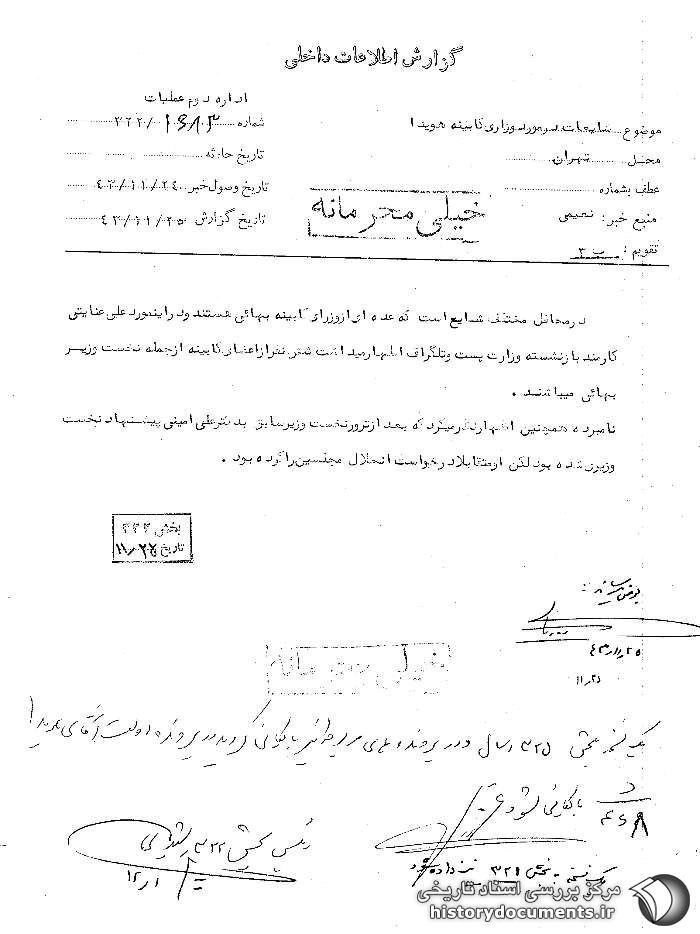 گزارش اطلاعات داخلی
اداره دوم عملیات
موضوع شایعات در مورد وزرای کابینه هویدا
شماره ۳۲۲/۱۶۸۳
محل تهران
تاریخ حادثه
عطف بشماره
تاریخ وصول خبر ۴۳/۱۱/۲۴
منبع خبر: نعیمی
خیلی محرمانه
تاریخ گزارش ۴۳/۱۱/۲۵
تقویم: ب ۳
در محافل مختلف شایع است که عده ای از وزرای کابینه بهائی هستند و در اینمورد علی عنایتی
کارمند بازنشسته وزارت پست و تلگراف اظهار میداشت شش نفر از اعضای کابینه از جمله نخست وزیر
بهائی میباشند .
نامبرده همچنین اظهار نظر میکرد که بعد از ترور نخست وزیر سابق به دکتر علی امینی پیشنهاد نخست
وزیری شده بود لکن او متقابلا درخواست انحلال مجلسین را کرده بود .
بخش ۳۳۳
تاریخ ۱۱/۲۷
بعرض میرساند:
۴۳/۱۱/۲۵
۱۱/۲۱
خیلی محرمانه
یک نسخه بخش ۳۲۵ ارسال و در پرونده های
بایگانی شود
رئیس بخش ۳۲۲
یک نسخه به بخش ۳۲۱ نیز داده شود
مرکز بررسی اسناد تاریخی
historydocuments.ir